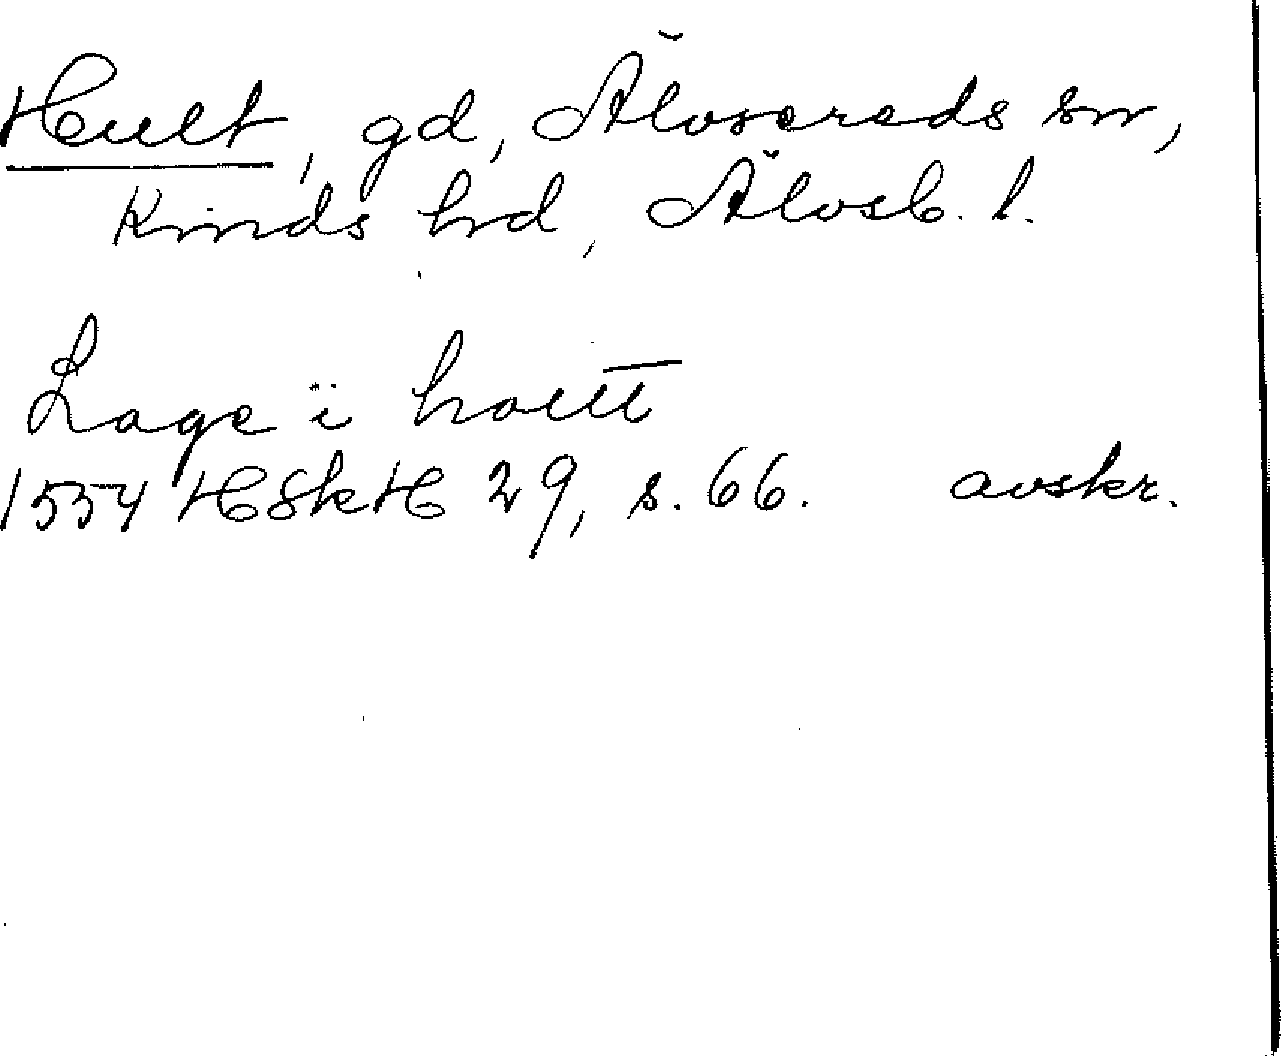 Hult, gd, Älvsereds sn,
Kinds hd, Älvsb. l.
Lage i holtt
1554 HSkH 29, s. 66. avskr.